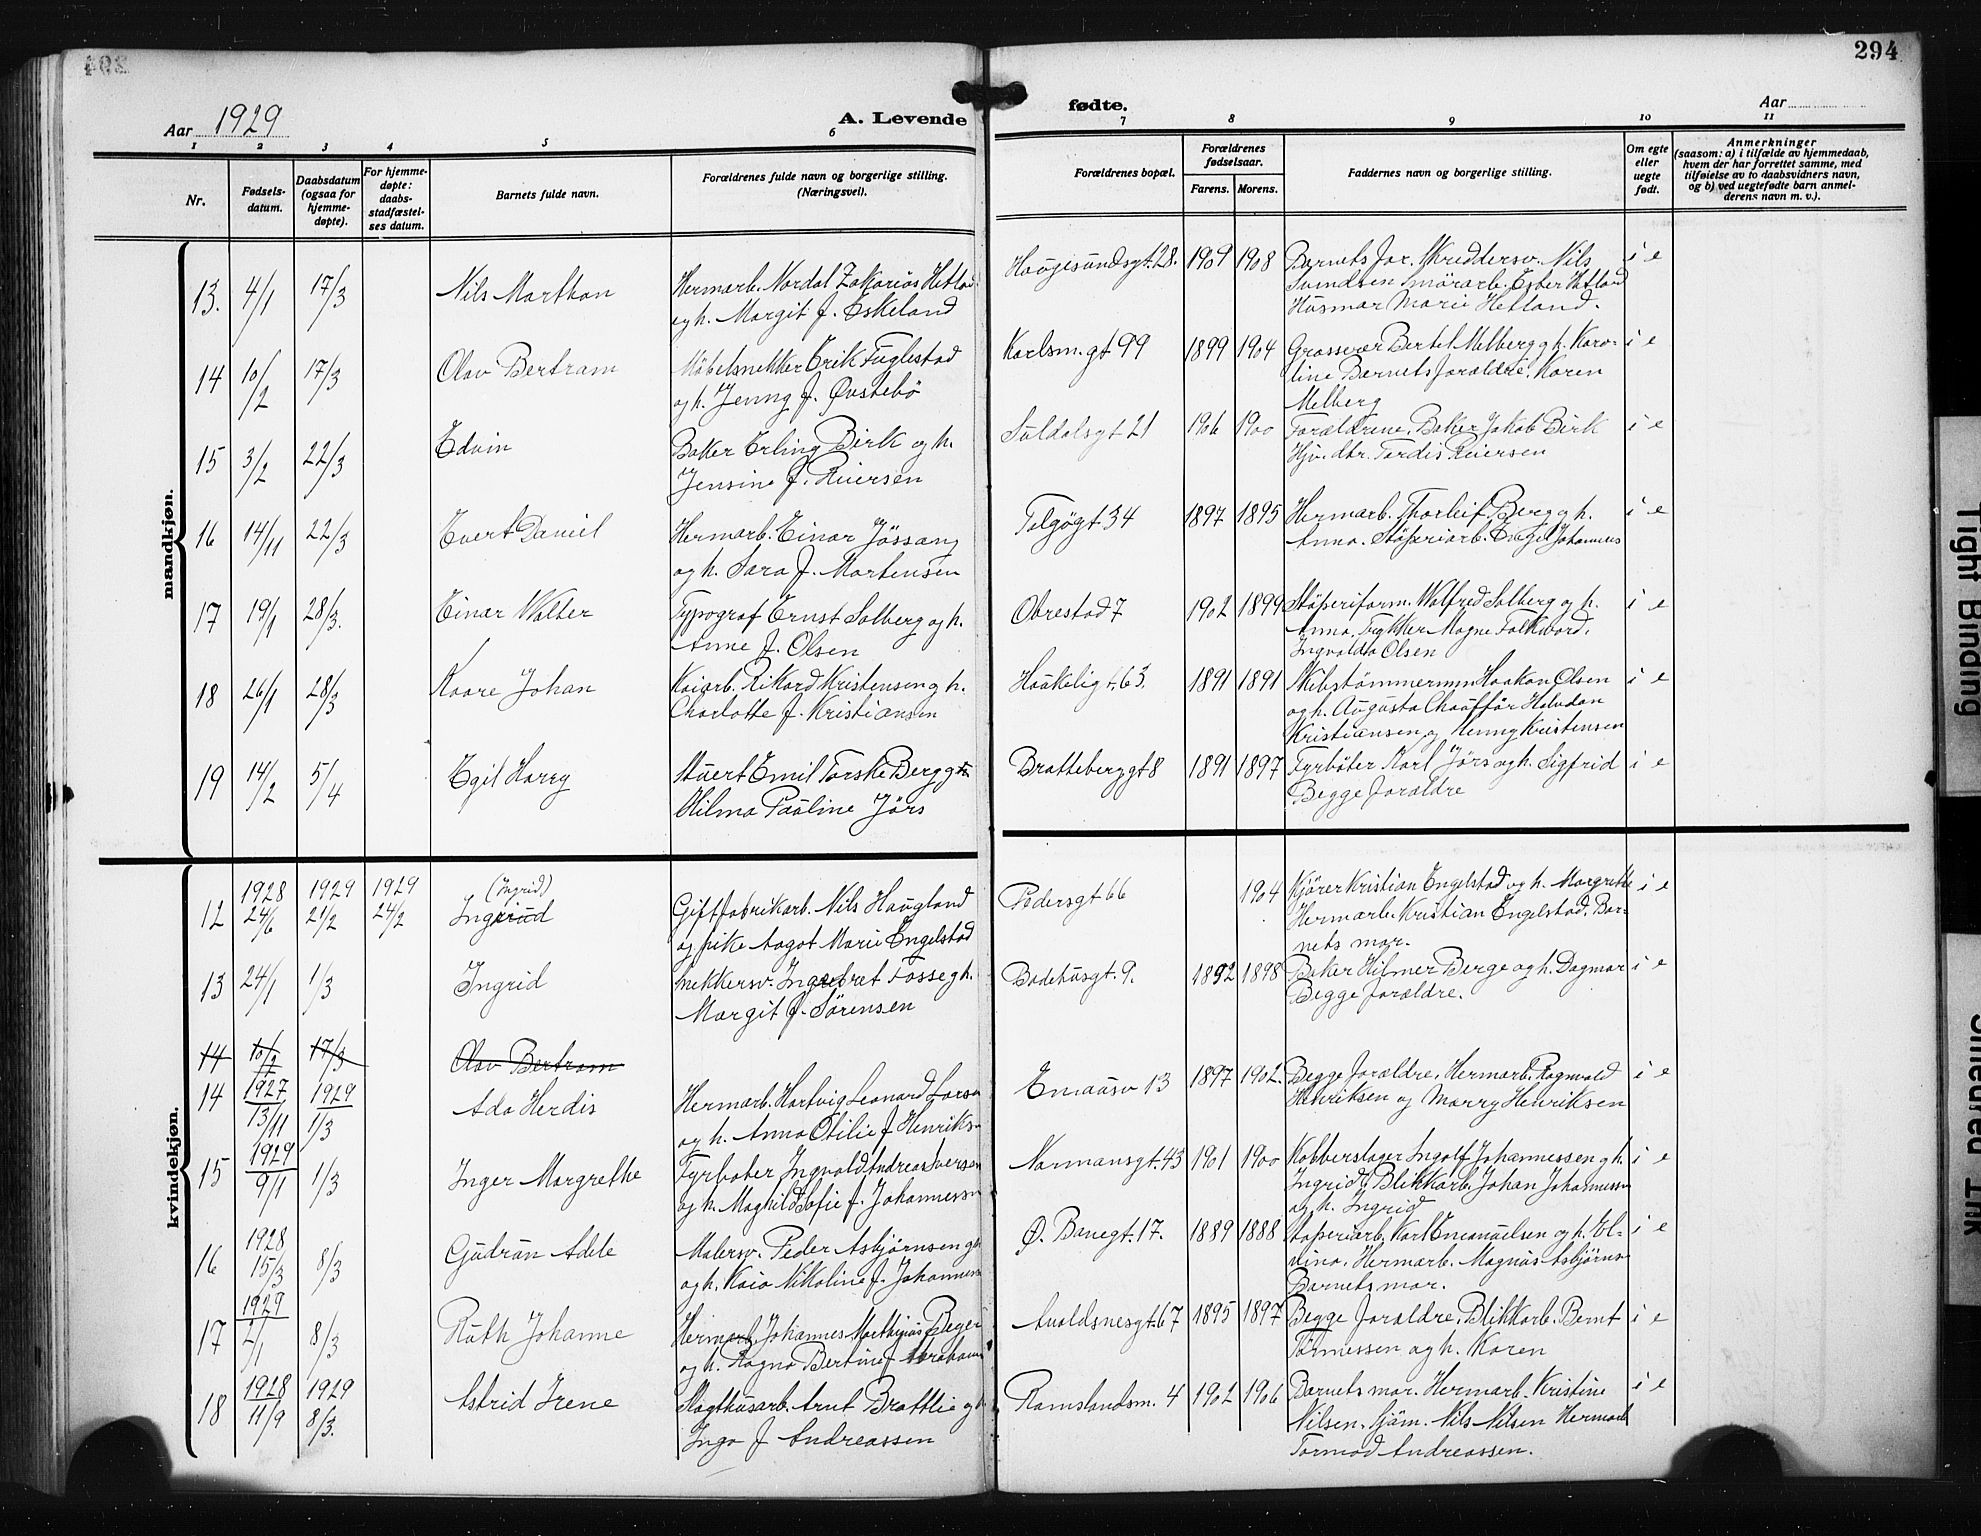 294
Aar 1929
A. Levende
fødte.
Aar
1 2 3 4 5 6 7 8 9 10 11
Nr.
Fødsels-
datum.
Daabsdatum
(ogsaa for
hjemme-
døpte).
For hjemme-
døpte:
daabs-
stadfæstel-
ses datum.
Barnets fulde navn.
Forældrenes fulde navn og borgerlige stilling.
(Næringsvei).
Forældrenes bopæl.
Forældrenes
fødselsaar.
Farens. Morens.
Faddernes navn og borgerlige stilling.
Om egte
eller
uegte
født.
Anmerkninger
(saasom: a) i tilfælde av hjemmedaab,
hvem der har forrettet samme, med
tilføielse av to daabsvidners navn,
og b) ved uegtefødte barn anmel-
derens navn m. v.).
mandkjøn.
13. 4/1 17/3 Nils Marthon
Hermarb. Nordal Zakarias Hetland
og h. Margit f. Eskeland
Haugesundsgt. 28. 1909 1908
Barnets far. Skreddersv. Nils
Svendsen Smörarb. Esber Hetland
Husmor Marie Hetland.
i e
14 10/2 17/3 Olav Bertram
Møbelsnekker Erik Fuglestad
og h. Jenny f. Øvstebö
Karlsm.gt 99 1899 1904
Grosserer Bertel Melberg g h. Karo-
line Barnets forældre. Karen
Melberg
i e
15 3/2 22/3 Edvin
Baker Erling Birk og h.
Jensine f. Reiersen
Suldalsgt 21 1906 1900
Forældrene. Baker Jakob Birk
Hjv. dtr. Tordis Reiersen
i e
16 14/11 22/3 Evert Daniel
Hermarb. Einar Jössang
og h. Sara f. Mortensen
Talgøgt 34 1897 1895
Hermarb. Thorleif Berg g h.
Anna. Støperiarb. Engel Johannes
i e
17 19/1 28/3. Einar Walter
Typograf Ernst Solberg og h.
Anne f. Olsen
Obrestad 7 1902 1899
Støperiform. Walfred Solberg og h.
Anna. Trykker Magne Falkvard.
Ingvalda Olsen
i e
18 26/1 28/3 Kaare Johan
Kaiarb. Rikard Kristensen g h.
Charlotte f. Kristiansen
Haukeligt. 63. 1891 1891
Skibstømmermn Haakon Olsen
og h. Augusta Chauffør Halvdan
Kristiansen og Henny Kristensen
i e
19 14/2 5/4 Egil Harry
Stuert Emil Torske Berg g h
Hilma Pauline Jörs
Brattebergt 8 1891 1897
Fyrbøter Karl Jörs og h. Sigfrid
Begge forældre
i e
kvindekjøn.
12 1928 24/6 1929 21/2 1929 24/2 (Ingrid)
Ingerud
Giftfabrikarb. Nils Haugland
og pike Aagot Marie Engelstad
Pedersgt 66 1904
Kjörer Kristian Engelstad og h. Margrethe
Hermarb. Kristian Engelstad. Bar-
nets mor.
i e
13 24/1 1/3 Ingrid
Snekkersv. Ingebret Fosse g h.
Margit f. Sörensen
Badehusgt. 9. 1892 1898
Baker Hilmer Berge og h. Dagmar
Begge forældre.
i e
14 10/2 17/3 Olav Bertram
14 1927 13/11 1929 1/3 Ada Herdis
Hermarb. Hartvig Leonard Larsen
og h. Anna Otilie f Henriks-
Emausv 13 1897 1902.
Begge forældre. Hermarb. Ragnvald
Henriksen og Marry Henriksen
i e
15 1929 9/1 1/3 Inger Margrethe
Fyrbøter Ingvald Andreas Iversen
og h. Maghild Sofie f. Johannessn
Normansgt. 43 1901 1900
Kobberslager Ingolf Johannessen g h.
Ingrid. Blikkarb. Johan Johannessen
og h. Ingrid
i e
16 1928 15/3 8/3 Gudrun Adele
Malersv. Peder Asbjørnsen g h
og h. Kaia Nikoline f. Johannesen
Ø. Banegt. 17. 1889 1888
Støperiarb. Karl Emanuelsen og h. El-
vina. Hermarb. Magnus Asbjörns-
Barnets mor.
i e
17 1929 2/1 8/3 Ruth Johanne
Hermarb. Johannes Mathias Bager
og h. Ragna Bertine f Abrahams
Avaldsnesgt. 67 1895 1897
Begge forældre. Blikkarb. Bernt
Tönnessen og h. Karen
i e
18 1928 11/9 1929 8/3. Astrid Irene
Slagthusarb. Arnt Brattlie g h
Inga f Andreassen
Ramslandsm. 4 1902 1906
Barnets mor. Hermarb. Kristine
Nilsen. Sjøm. Nils Nilsen Hermarb
Tormod Andreassen.
i e
Tight Binding